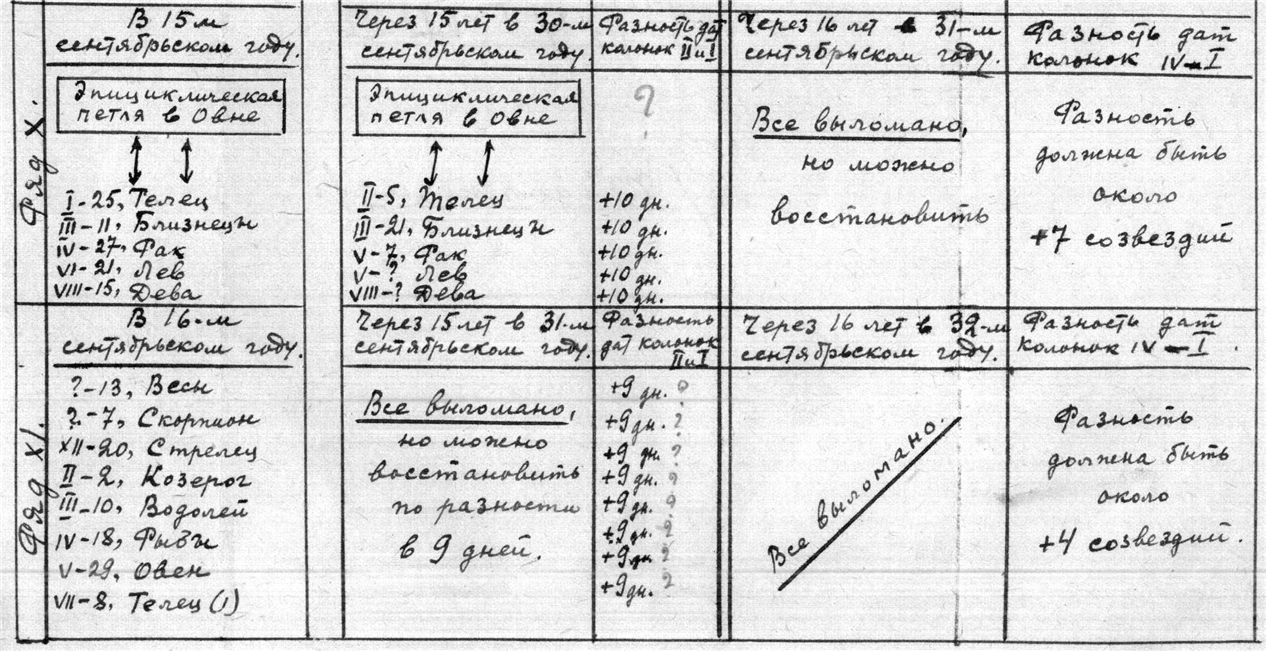 Ряд X.
В 15м
сентябрьском году.
Эпициклическая
петля в Овне
I-25, Телец
III-11, Близнецы
IV-27, Рак
VI-21, Лев
VIII-15, Дева
Через 15 лет в 30-м
сентябрьском году.
Эпициклическая
петля в Овне
II-5, Телец
III-21, Близнецы
V-7, Рак
V-? Лев
VIII-? Дева
Разность дат
колонок II и I
?
+10 дн.
+10 дн.
+10 дн.
+10 дн.
+10 дн.
Через 16 лет в 31-м
сентябрьском году.
Все выломано,
но можно
восстановить
Разность дат
колонок IV-I
Разность
должна быть
около
+7 созвездий
Ряд XI.
В 16-м
сентябрьском году.
?-13, Весы
?-7, Скорпион
XII-20, Стрелец
II-2, Козерог
III-10, Водолей
IV-18, Рыбы
V-29, Овен
VII-8, Телец (1)
Через 15 лет в 31-м
сентябрьском году.
Все выломано,
но можно
восстановить
по разности
в 9 дней.
Разность
дат колонок
II и I
+9 дн. ?
+9 дн. ?
+9 дн. ?
+9 дн. ?
+9 дн. ?
+9 дн. ?
+9 дн. ?
+9 дн. ?
Через 16 лет в 32-м
сентябрьском году.
Все выломано.
Разность дат
колонок IV-I.
Разность
должна быть
около
+4 созвездий.